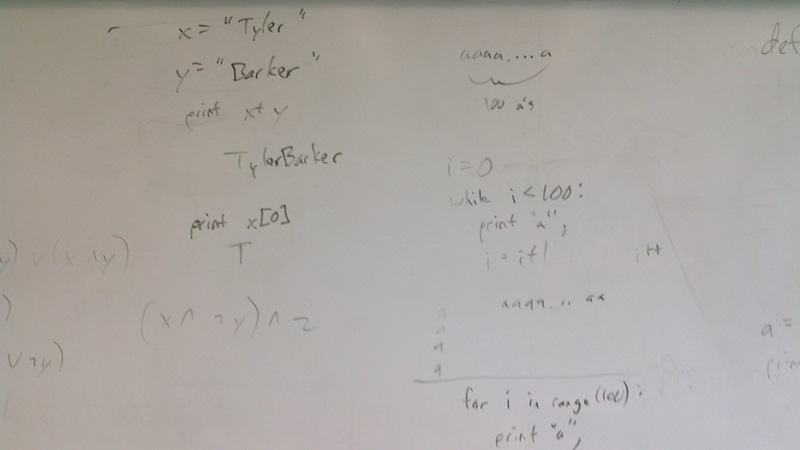 x = "Tyler"
y = "Barker"
print x + y
TylerBarker
print x[0]
T
) v (x ∧ y)
)
(x ∧ ¬y) ∧ z
v ¬y)
aaaa....a
100 a's
i = 0
while i < 100:
print "a",
i = i + 1
i++
aaaa... aa
a
a
a
a
for i in range(100):
print "a",
def
a =
prin